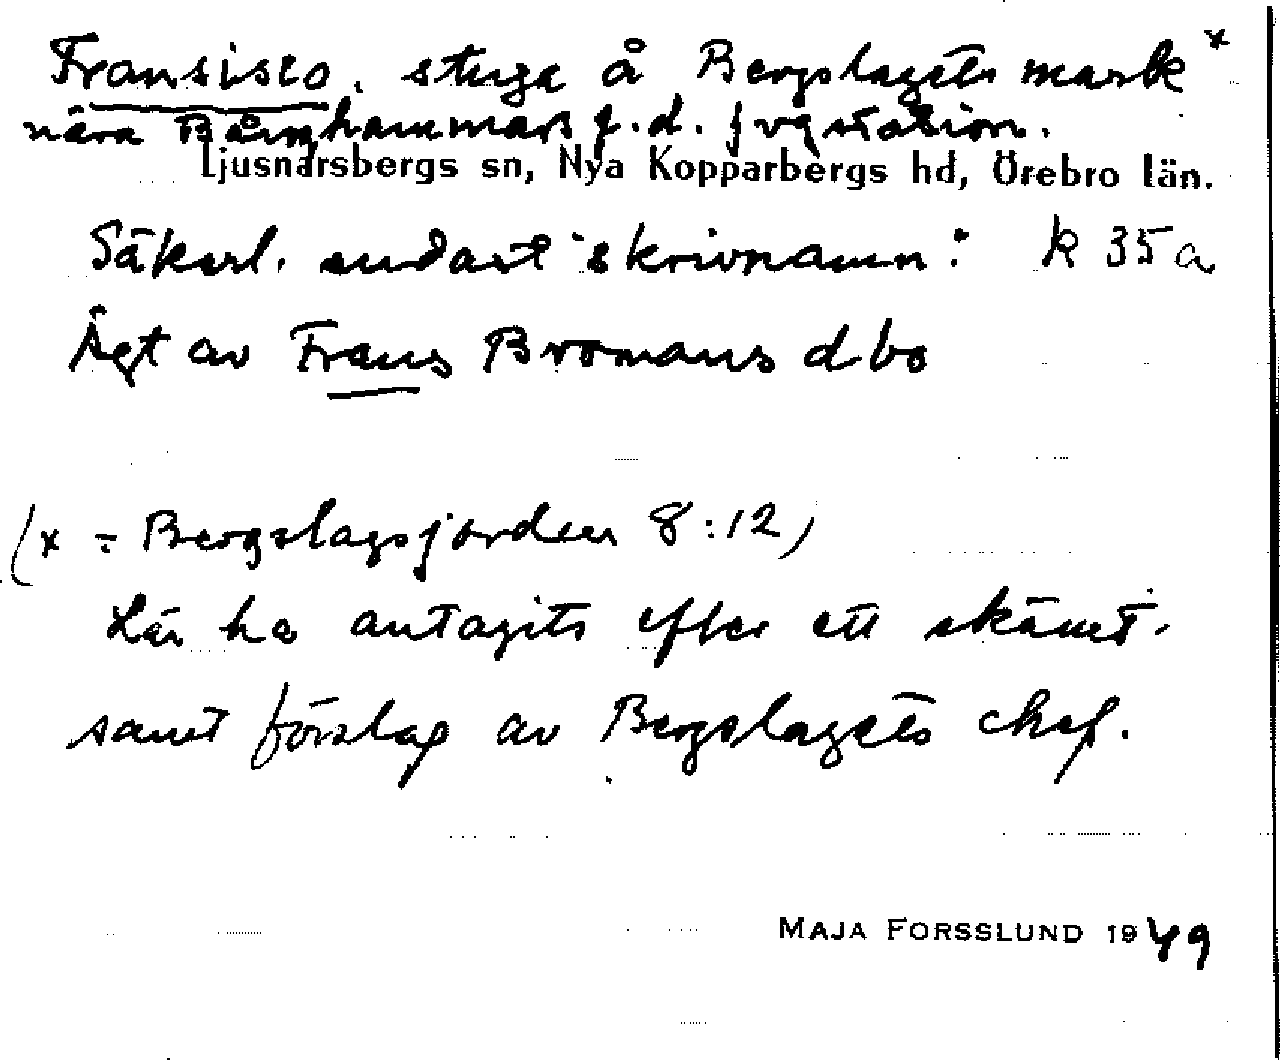 Fransisco, stuga å Bergslagets mark x
nära Bånghammars f.d. jvgstation.
Ljusnarsbergs sn, Nya Kopparbergs hd, Örebro län.
Säkerl. endast "skrivnamn". k 35 a
Ägt av Frans Bromans dbo
(x = Bergslagsjorden 8:12)
Lär ha antagits efter ett skämt-
samt förslag av Bergslagets chef.
MAJA FORSSLUND 1949